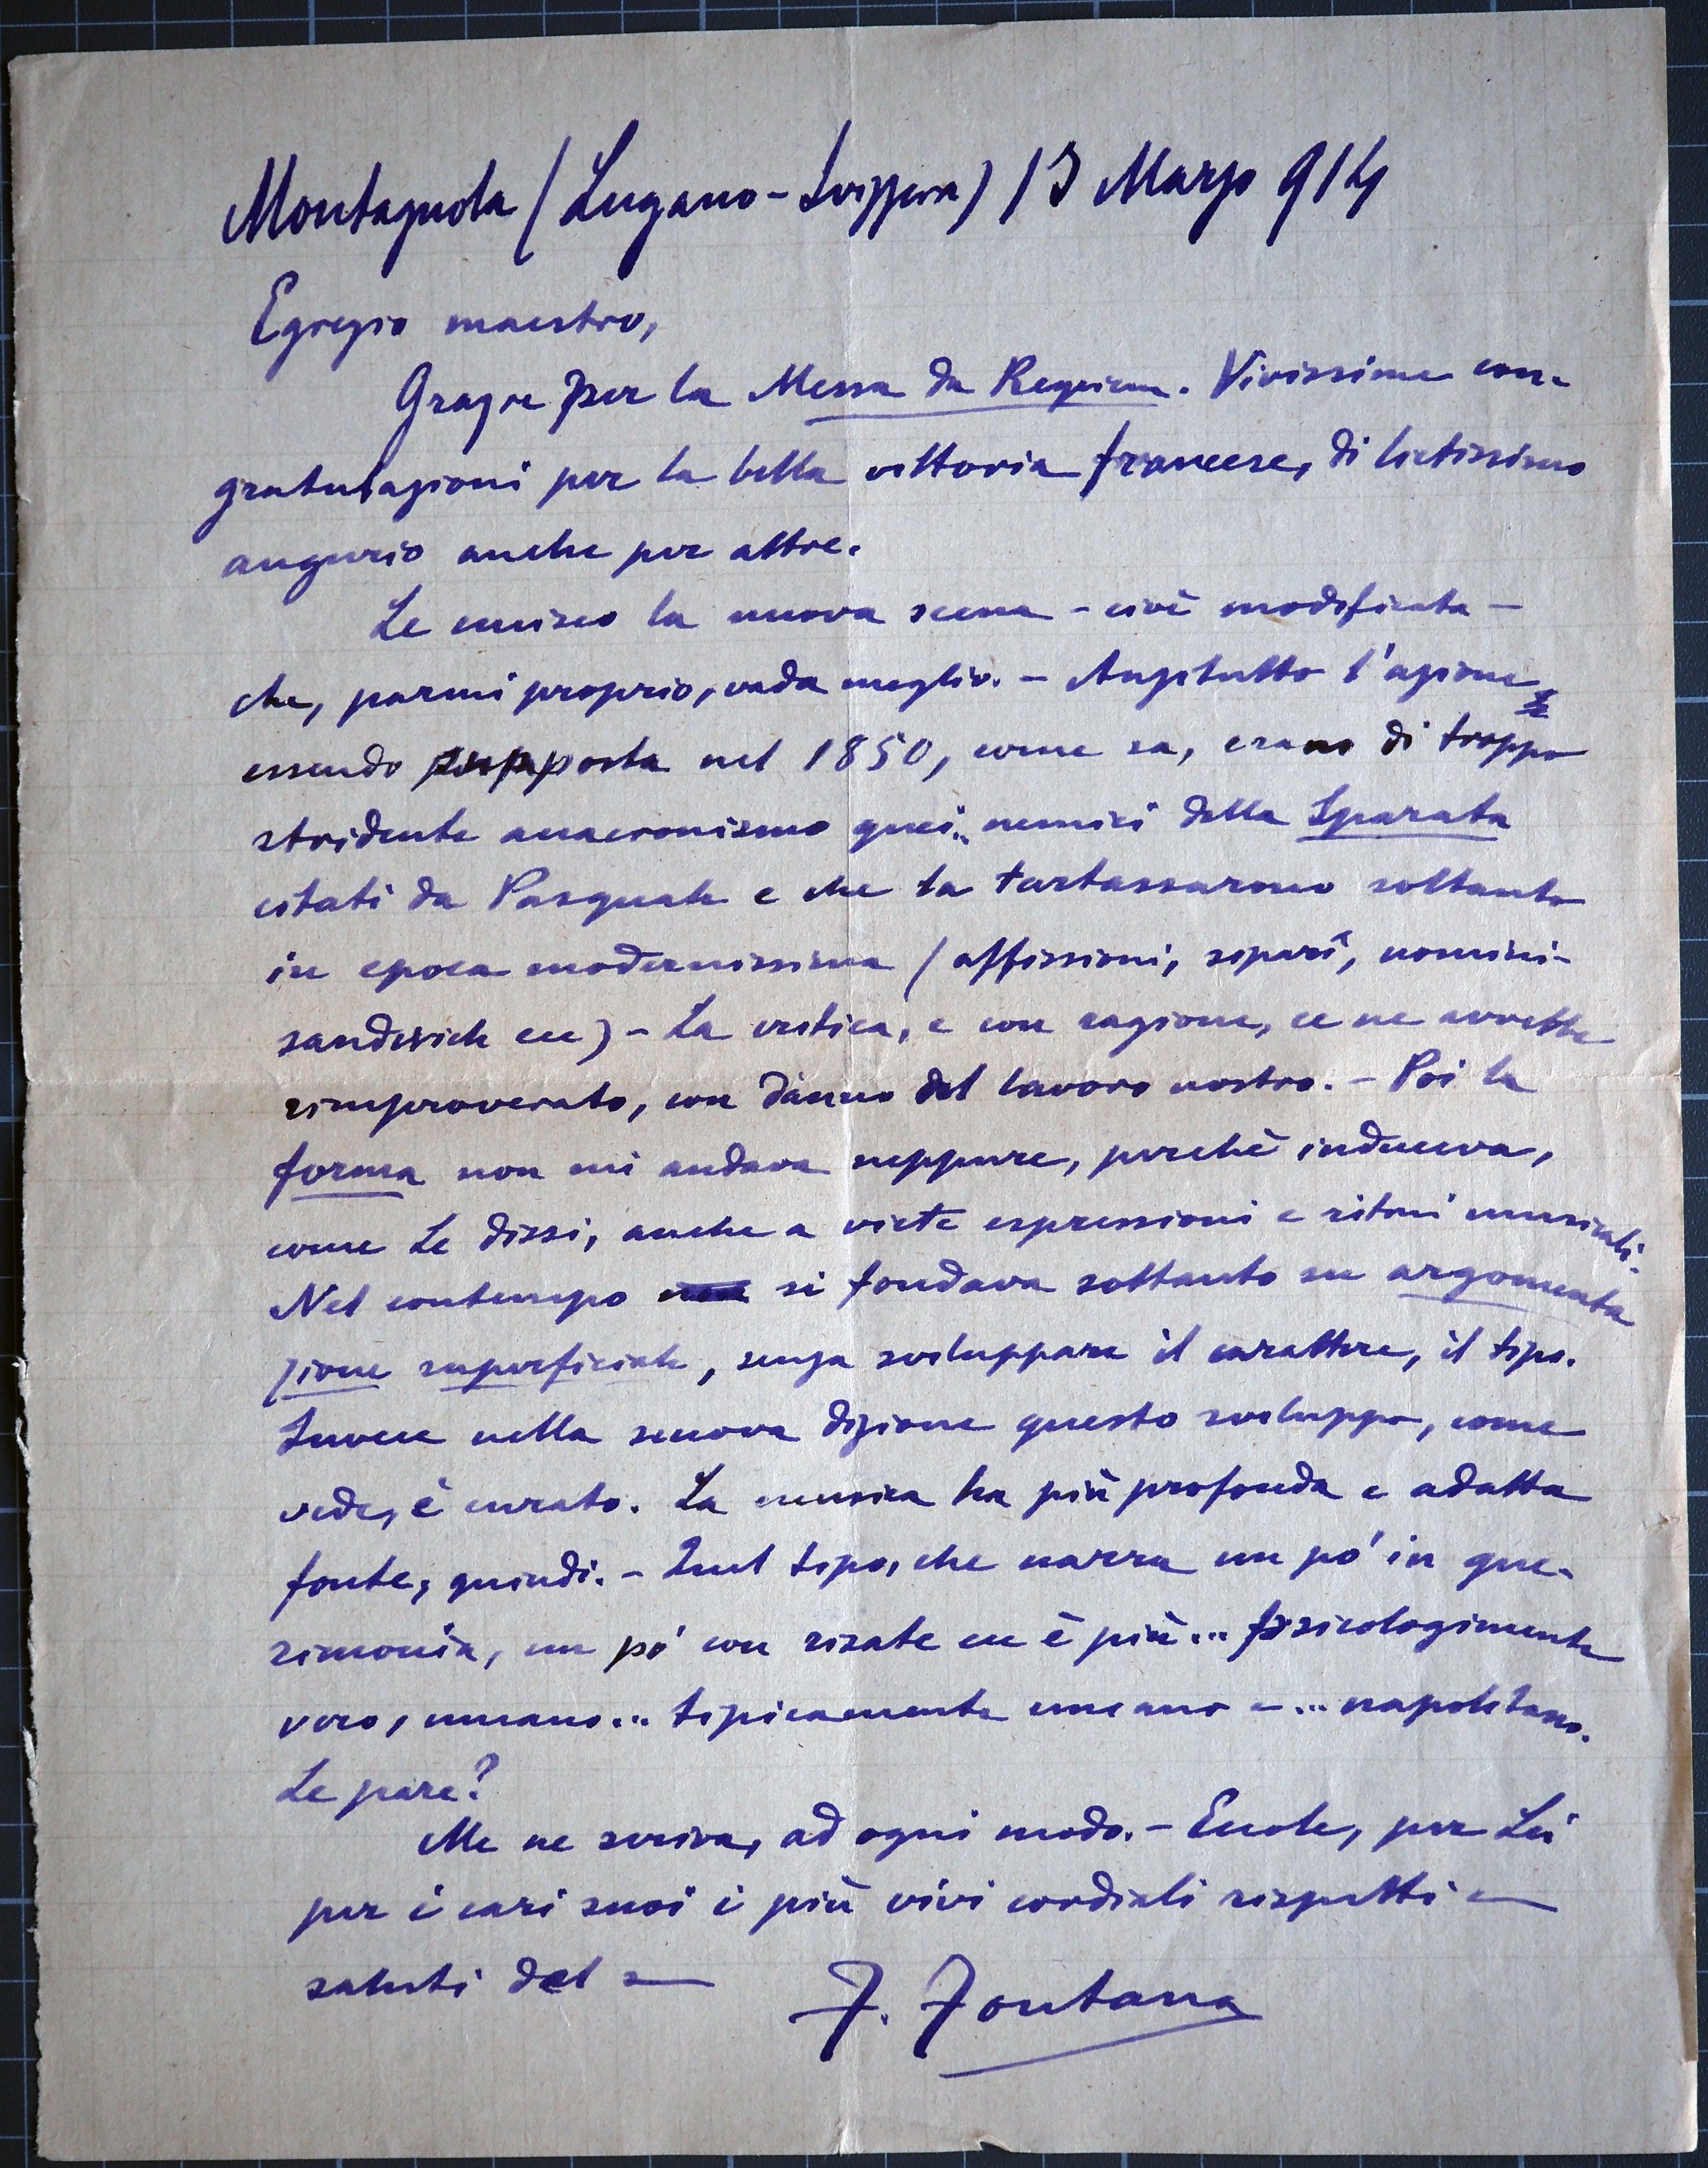 Montagnola (Lugano-Svizzera) 13 Marzo 914
Egregio maestro,
Grazie per la Messa da Requiem. Vivissime con-
gratulazioni per la bella vittoria francese, di lietissimo
augurio anche per altre.
Le unisco la nuova scena - cioè modificata -
che, parmi proprio, vada meglio. - Anzitutto l'azione
essendo posta nel 1850, come sa, erano di troppo
stridente anacronismo quei.. nemici della Sparata
citati da Pasquale e che la tartassarono soltanto
in epoca modernissima (affissioni, siparî, uomini-
sandwich ecc) - La critica, e con ragione, ce ne avrebbe
rimproverato, con danno del lavoro nostro. - Poi la
forma non mi andava neppure, perchè induceva,
come Le dissi, anche a viete espressioni e ritmi musicali.
Nel contempo si fondava soltanto su argomenta
zione superficiale, senza sviluppare il carattere, il tipo.
Invece nella nuova dizione questo sviluppo, come
vede, è curato. La musica ha più profonda e adatta
fonte, quindi. - Quel tipo, che narra un pó in que-
rimonia, un pó con risate ecc è più... psicologimente
vero, umano... tipicamente umano e... napoletano.
Le pare?
Me ne scriva, ad ogni modo. - Eccole, per Lei
per i cari suoi i più vivi cordiali rispetti e
saluti del s
F. Fontana